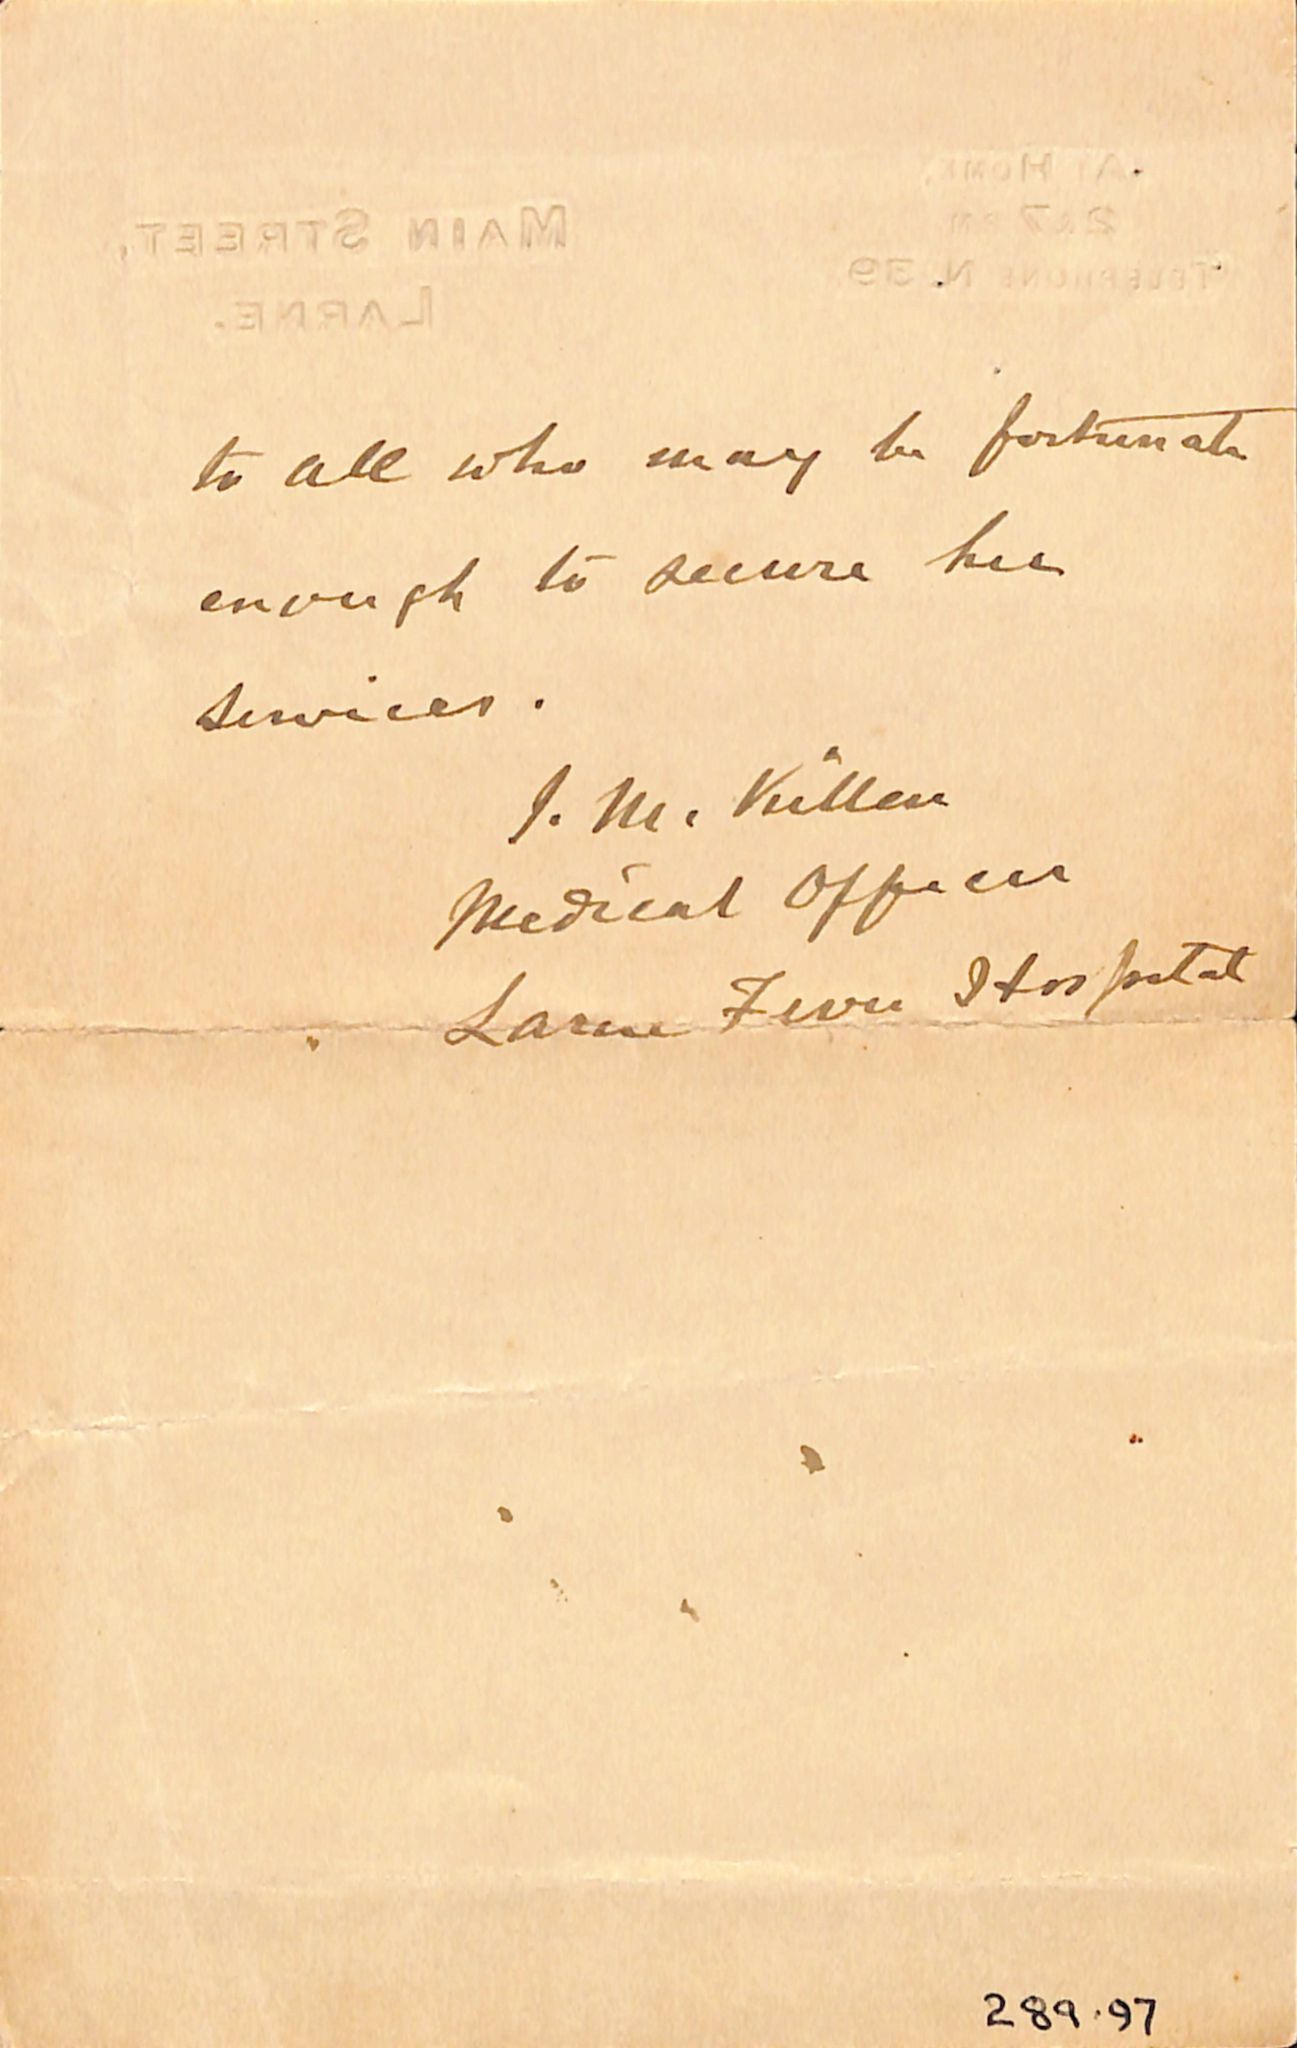 MAIN STREET,
LARNE.
AT HOME,
2 & 7 PM
TELEPHONE N. 39
to all who may be fortunate
enough to secure her
services.
J. M. Killen
Medical Officer
Larne Fever Hospital
289.97